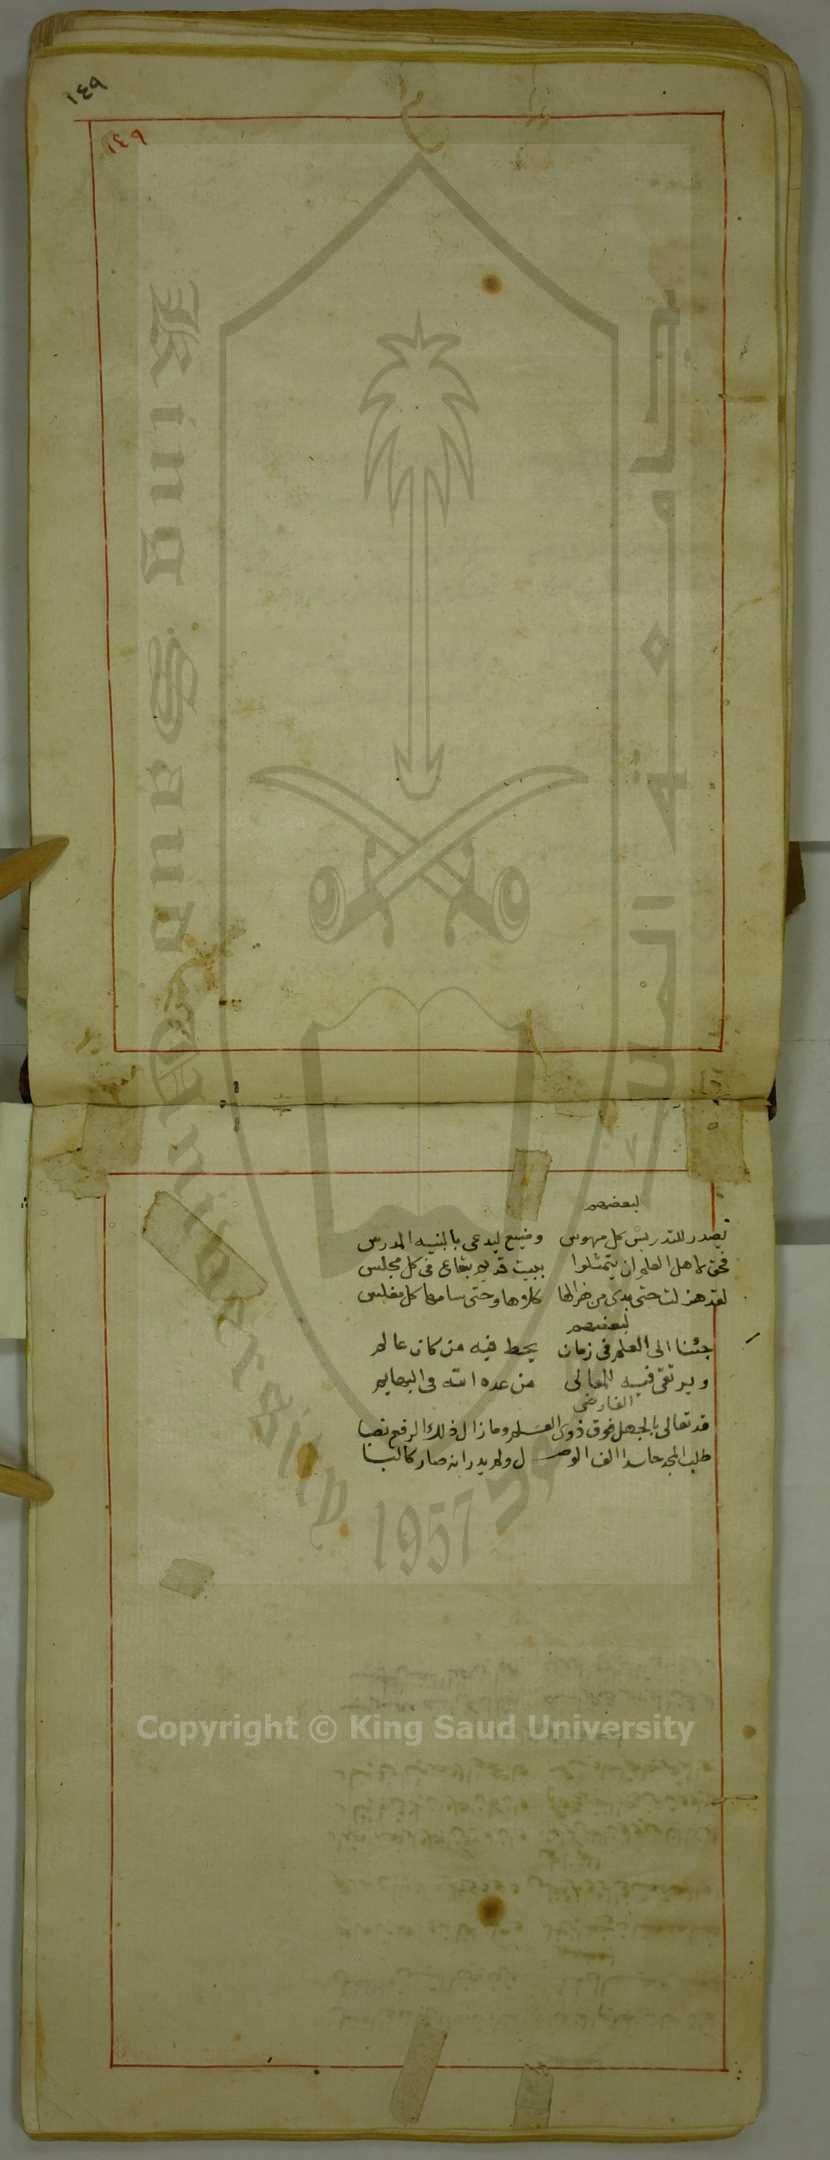 ١٤٩
١٤٩
لبعضهم
تصدر للتدريس كل مهوس وضيع ليدعى بالفقيه المدرس
فحق لاهل العلم ان يتمثلوا ببيت قديم شاع في كل مجلس
لقد هزلت حتى بدى من هزالها كلاها وحتى سامها كل مفلس
لبعضهم
جئنا الى العلم في زمان يحط فيه من كان عالم
ويرتقي فيه للمعالي من عده الله في البهايم
الفارضي
قد تعالى بالجهل فوق ذوى العلم وما زال ذلك الرفع نصبا
طلب المجد حاسدا الف الوصل ولم يدر انه صار كالبا
King Saud University
جامعة الملك سعود
1957
Copyright © King Saud University